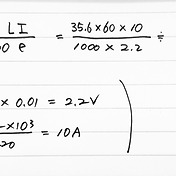 LI/00 e = 35.6×60×10/1000×2.2 ≑
× 0.01 = 2.2V
×10³/20 = 10A